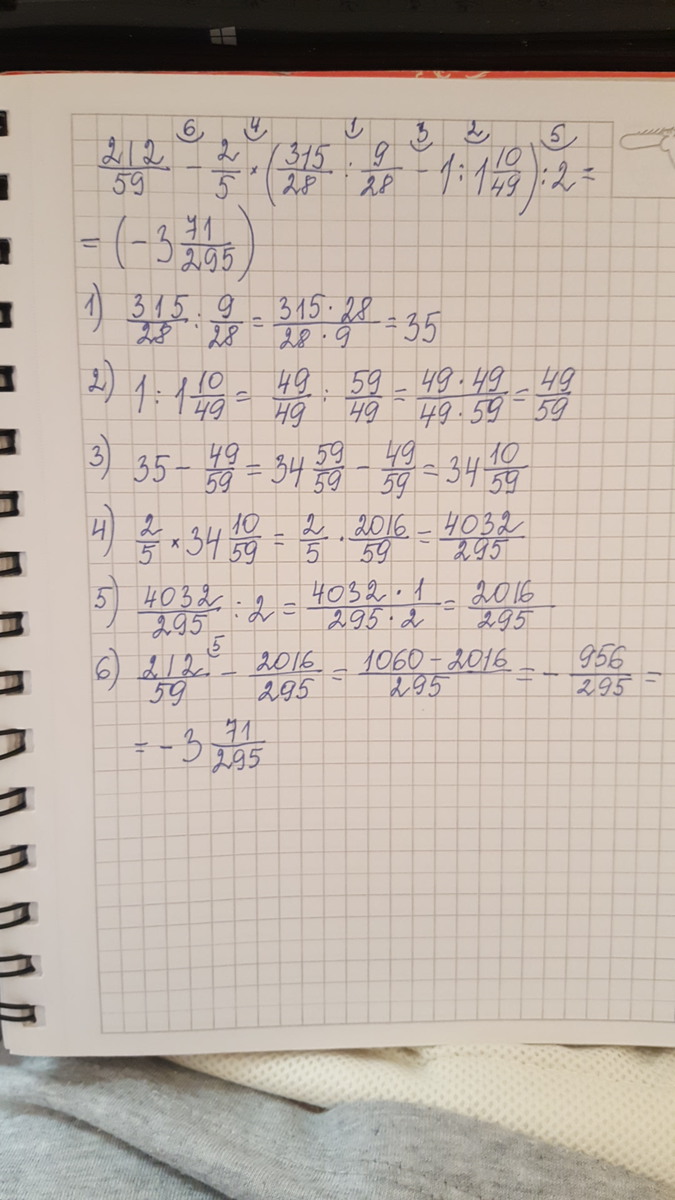 212/59 - 2/5 × (315/28 : 9/28 - 1 : 1 10/49) : 2 =
= (-3 71/295)
1) 315/28 : 9/28 = 315·28/28·9 = 35
2) 1 : 1 10/49 = 49/49 : 59/49 = 49·49/49·59 = 49/59
3) 35 - 49/59 = 34 59/59 - 49/59 = 34 10/59
4) 2/5 × 34 10/59 = 2/5 · 2016/59 = 4032/295
5) 4032/295 : 2 = 4032·1/295·2 = 2016/295
6) 212/59 ⁵ - 2016/295 = 1060-2016/295 = - 956/295 =
= -3 71/295